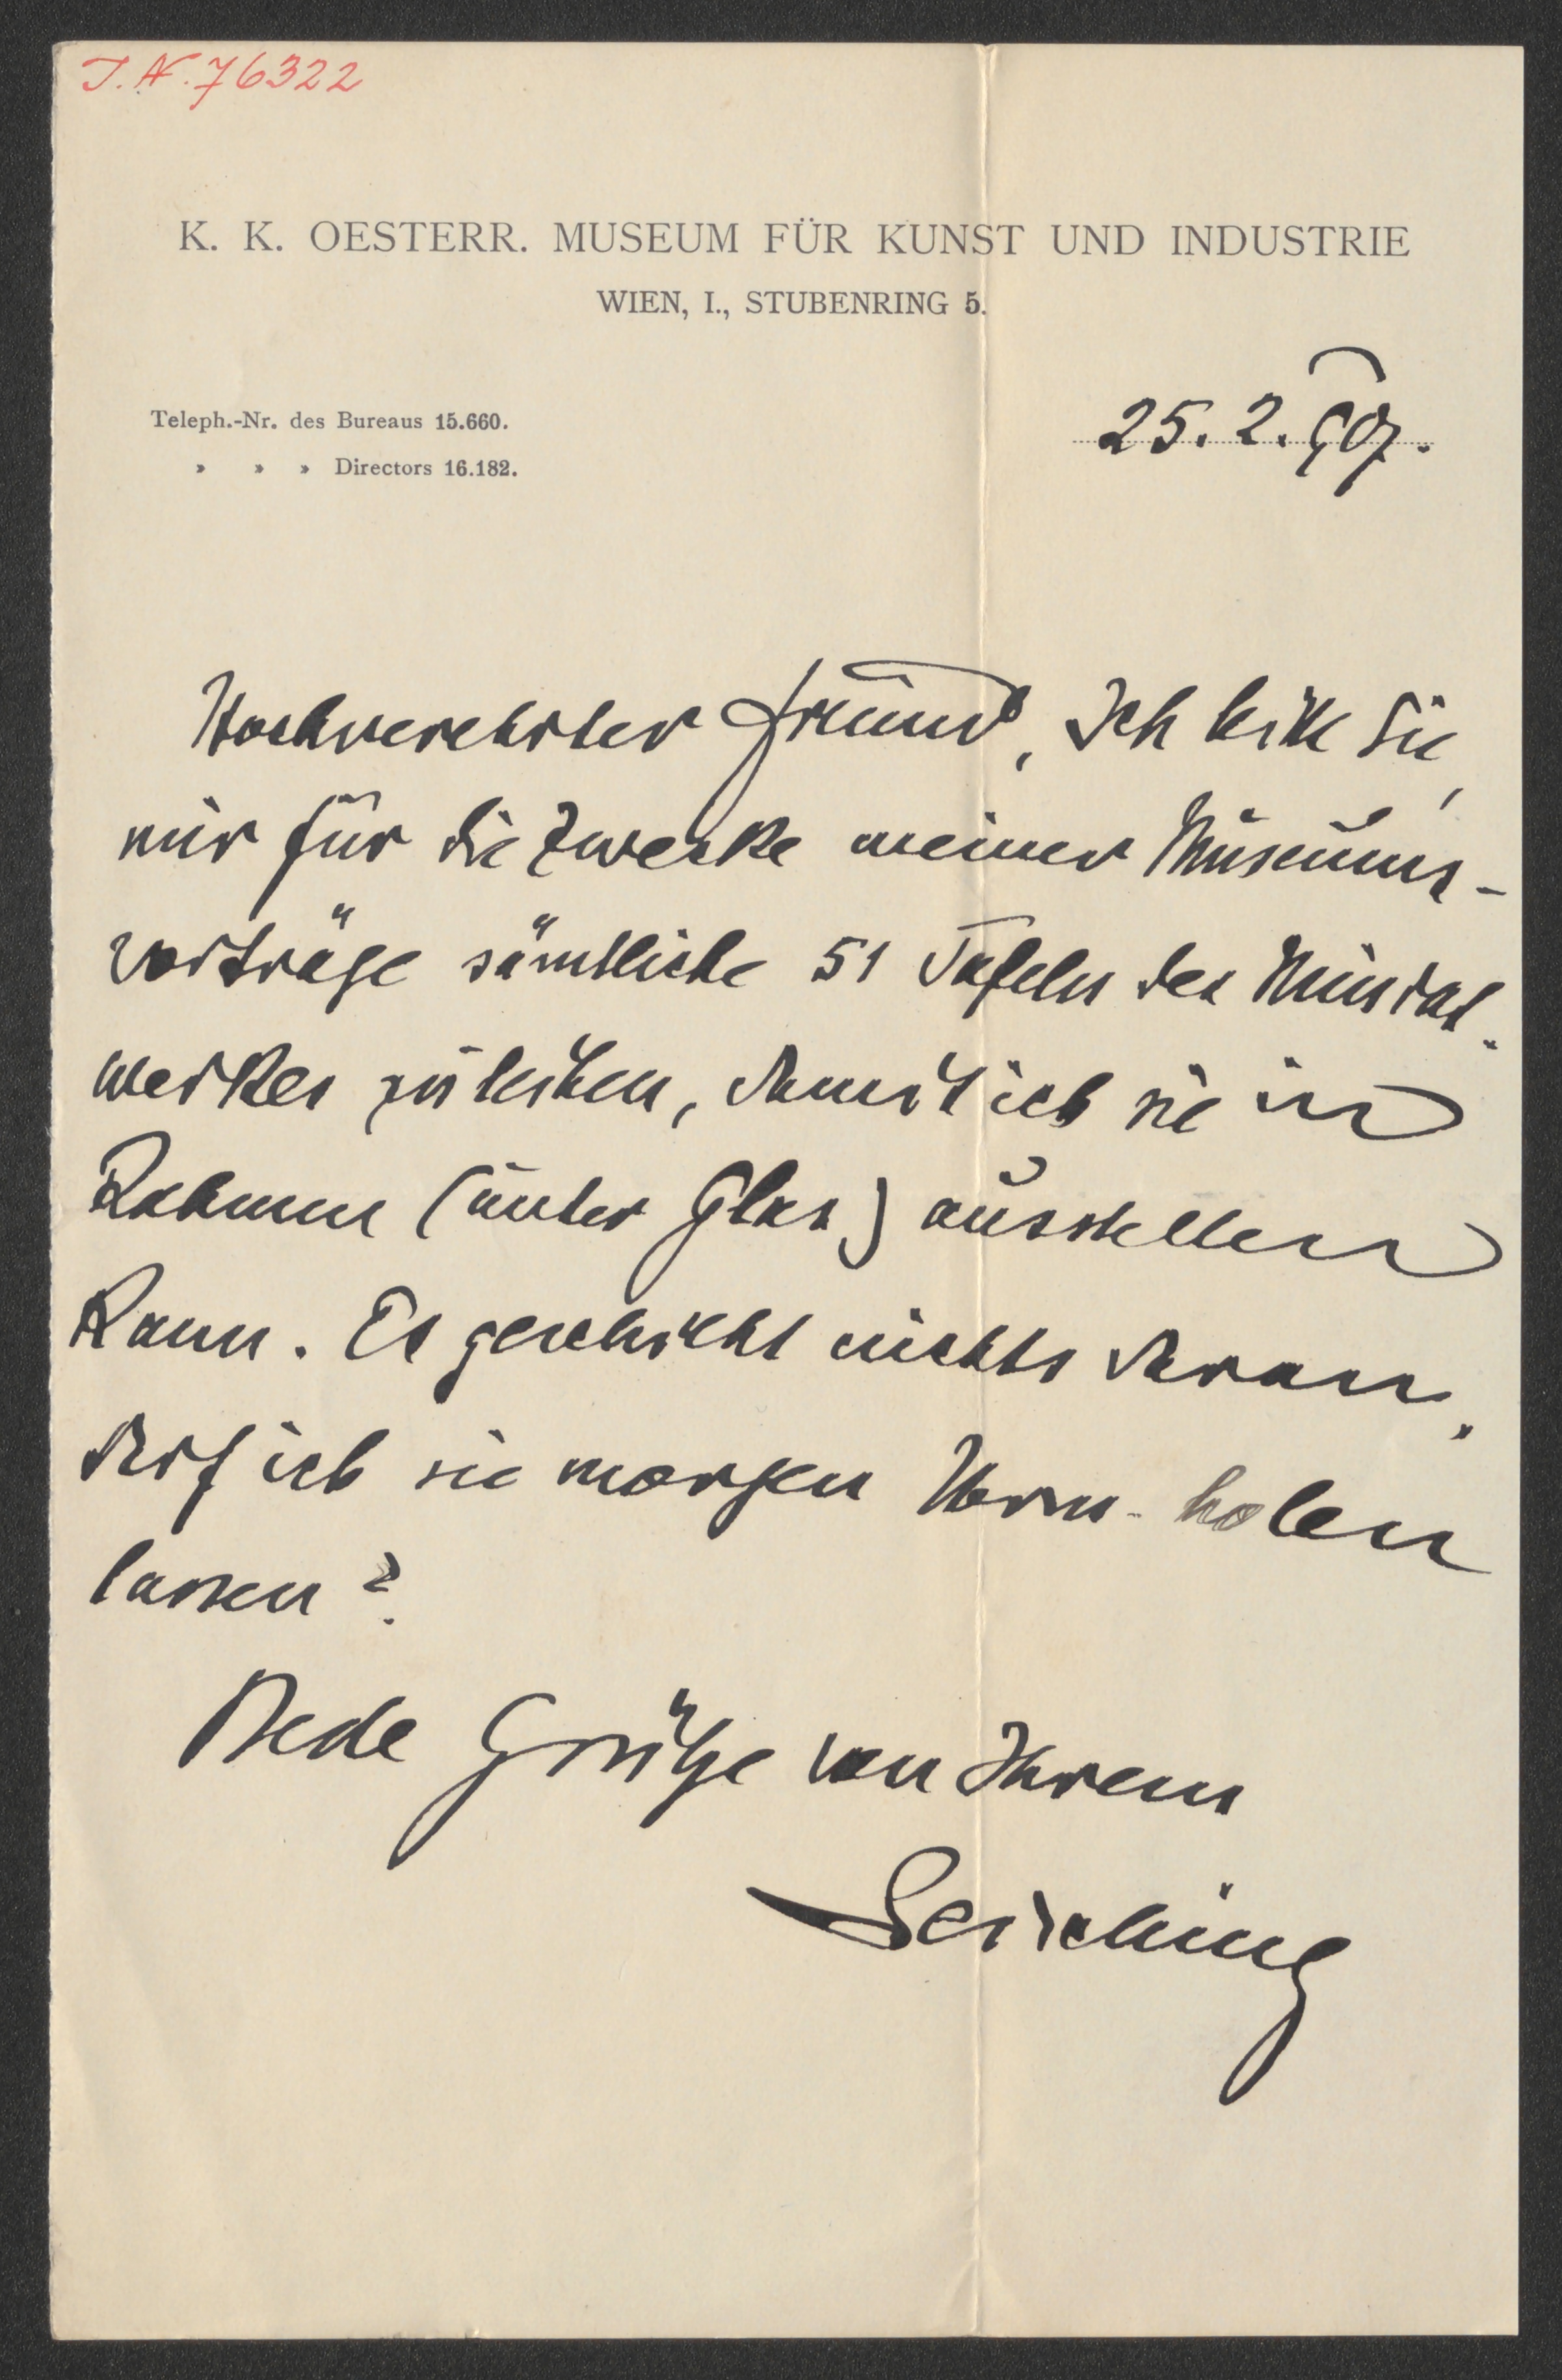 I. N. 76322
K. K. OESTERR. MUSEUM FÜR KUNST UND INDUSTRIE
WIEN, I., STUBENRING 5.
Teleph.-Nr. des Bureaus 15.660.
» » » Directors 16.182.
25. 2. 907.
Hochverehrter Freund, Ich bitte Sie,
mir für die Zwecke meiner Museums-
vorträge sämtliche 51 Tafeln des
werkes zu leihen, damit ich sie in
Rahmen (unter Glas) ausstellen
kann. Es geschieht nichts daran.
Darf ich sie morgen Vorm. holen
lassen?
Beste Grüße von Ihrem
Leisching